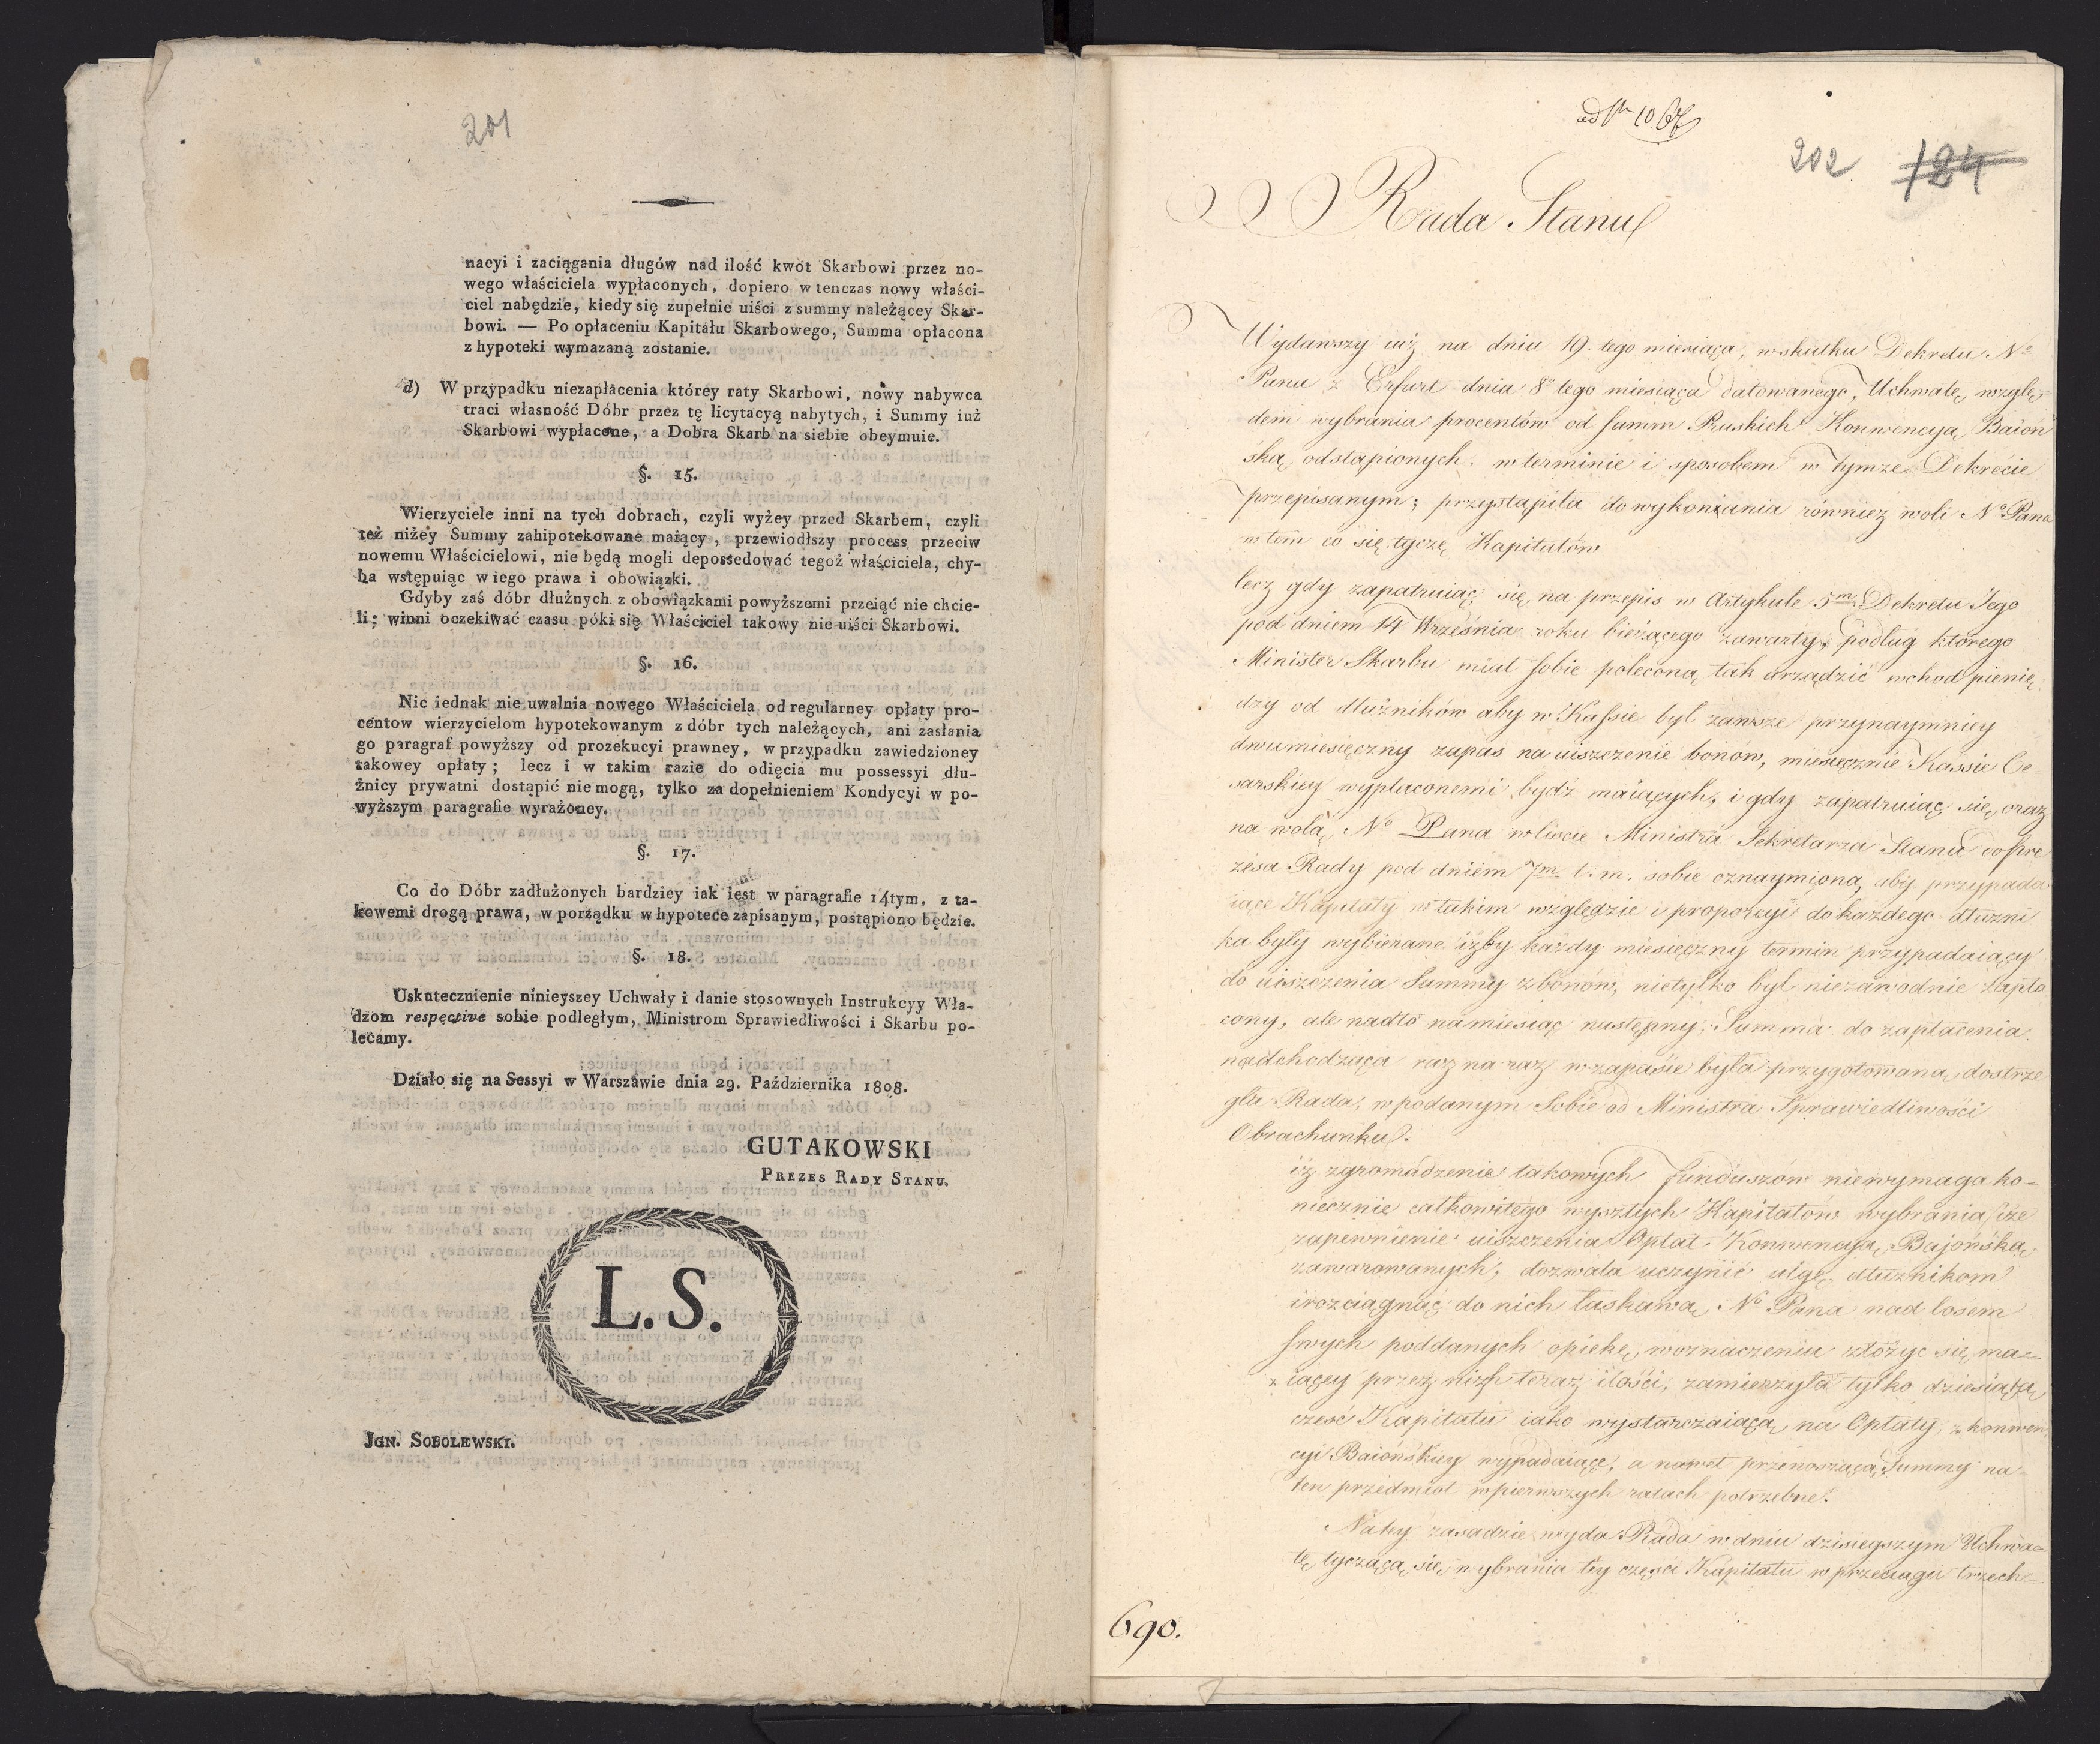 201
nacyi i zaciągania długów nad ilość kwot Skarbowi przez no-
wego właściciela wypłaconych, dopiero w tenczas nowy właści-
ciel nabędzie, kiedy się zupełnie uiści z summy należącey Skar-
bowi. — Po opłaceniu Kapitału Skarbowego, Summa opłacona
z hypoteki wymazaną zostanie.
d) W przypadku niezapłacenia którey raty Skarbowi, nowy nabywca
traci własność Dóbr przez tę licytacyą nabytych, i Summy iuż
Skarbowi wypłacone, a Dobra Skarb na siebie obeymuie.
§. 15.
Wierzyciele inni na tych dobrach, czyli wyżey przed Skarbem, czyli
też niżey Summy zahipotekowane maiący, przewiodłszy process przeciw
nowemu Właścicielowi, nie będą mogli depossedować tegoż właściciela, chy-
ba wstępuiąc w iego prawa i obowiązki.
Gdyby zaś dóbr dłużnych z obowiązkami powyższemi przeiąć nie chcie-
li; winni oczekiwać czasu póki się Właściciel takowy nie uiści Skarbowi.
§. 16.
Nic iednak nie uwalnia nowego Właściciela od regularney opłaty pro-
centow wierzycielom hypotekowanym z dóbr tych należących, ani zasłania
go paragraf powyższy od prozekucyi prawney, w przypadku zawiedzioney
takowey opłaty; lecz i w takim razie do odięcia mu possessyi dłu-
żnicy prywatni dostąpić nie mogą, tylko za dopełnieniem Kondycyi w po-
wyższym paragrafie wyrażoney.
§. 17.
Co do Dóbr zadłużonych bardziey iak iest w paragrafie 14tym, z ta-
kowemi drogą prawa, w porządku w hypotece zapisanym, postąpiono będzie.
§. 18.
Uskutecznienie ninieyszey Uchwały i danie stosownych Instrukcyy Wła-
dzom respective sobie podległym, Ministrom Sprawiedliwości i Skarbu po-
lecamy.
Działo się na Sessyi w Warszawie dnia 29. Października 1808.
GUTAKOWSKI
PREZES RADY STANU.
L.S.
JGN. SOBOLEWSKI.
202 124
Rada Stanu
Wydawszy iuż na dniu 19. tego miesiąca, w skutku Dekretu No
Pana z Erfurt dniu 8o tego miesiąca datowanego, Uchwałę wzglę-
dem wybrania procentów od summ Pruskich Konwencyą Baion
ską odstąpionych, w terminie i sposobem w tymże Dekrecie
przepisanym; przystąpiła do wykonania również woli No Pana
w tem co się tycze Kapitałów
lecz gdy zapatruiąc się na przepis w Artykule 5m Dekretu Jego
pod dniem 14 Września roku bieżącego zawarty, podług którego
Minister Skarbu miał sobie polecono, tak urządzić wchod pienię
dzy od dłużników aby w Kassie był zawsze przynaymniey
dwumiesięczny zapas na uiszczenie bonów, miesięcznie Kassie Ce-
sarskiey wypłaconemi bydź maiących, i gdy zapatruiąc się oraz
na wolą No Pana w liście Ministra Sekretarza Stanu do Pre
zesa Rady pod dniem 7m t. m. sobie oznaymioną, aby przypada
iące Kapitały w takim względzie i proporcyi do każdego dłużni
ka były wybierane iżby każdy miesięczny termin przypadaiący
do uiszczenia Summy z bonów, nietylko był niezawodnie zapła
cony, ale nadto na miesiąc następny, Summa do zapłacenia
nadchodząca raz na raz w zapasie była przygotowana, dostrze
gła Rada, w podanym Sobie od Ministra Sprawiedliwości
Obrachunku.
iż zgromadzenie takowych funduszów nie wymaga ko-
niecznie całkowitego wyszłych Kapitałów wybrania, iże
zapewnienie uiszczenia Opłat Konwencyą Bajońską
zawarowanych, dozwala uczynić ulgę dłużnikom
i rozciągnąć do nich łaskawą No Pana nad losem
swych poddanych opiekę, w oznaczeniu złożyć się ma-
iącey przez nich teraz ilości, zamierzyła tylko dziesiątą
cześć Kapitału iako wystarczaiącą na Opłaty z konwen
cyi Baiońskiey wypadaiące, a nawet przenoszącą Summy na-
ten przedmiot w pierwszych ratach potrzebne.
Na tey zasadzie wyda Rada w dniu dzisieyszym Uchwa-
łę tyczącą się wybrania tey części Kapitału w przeciągu trzech-
690.